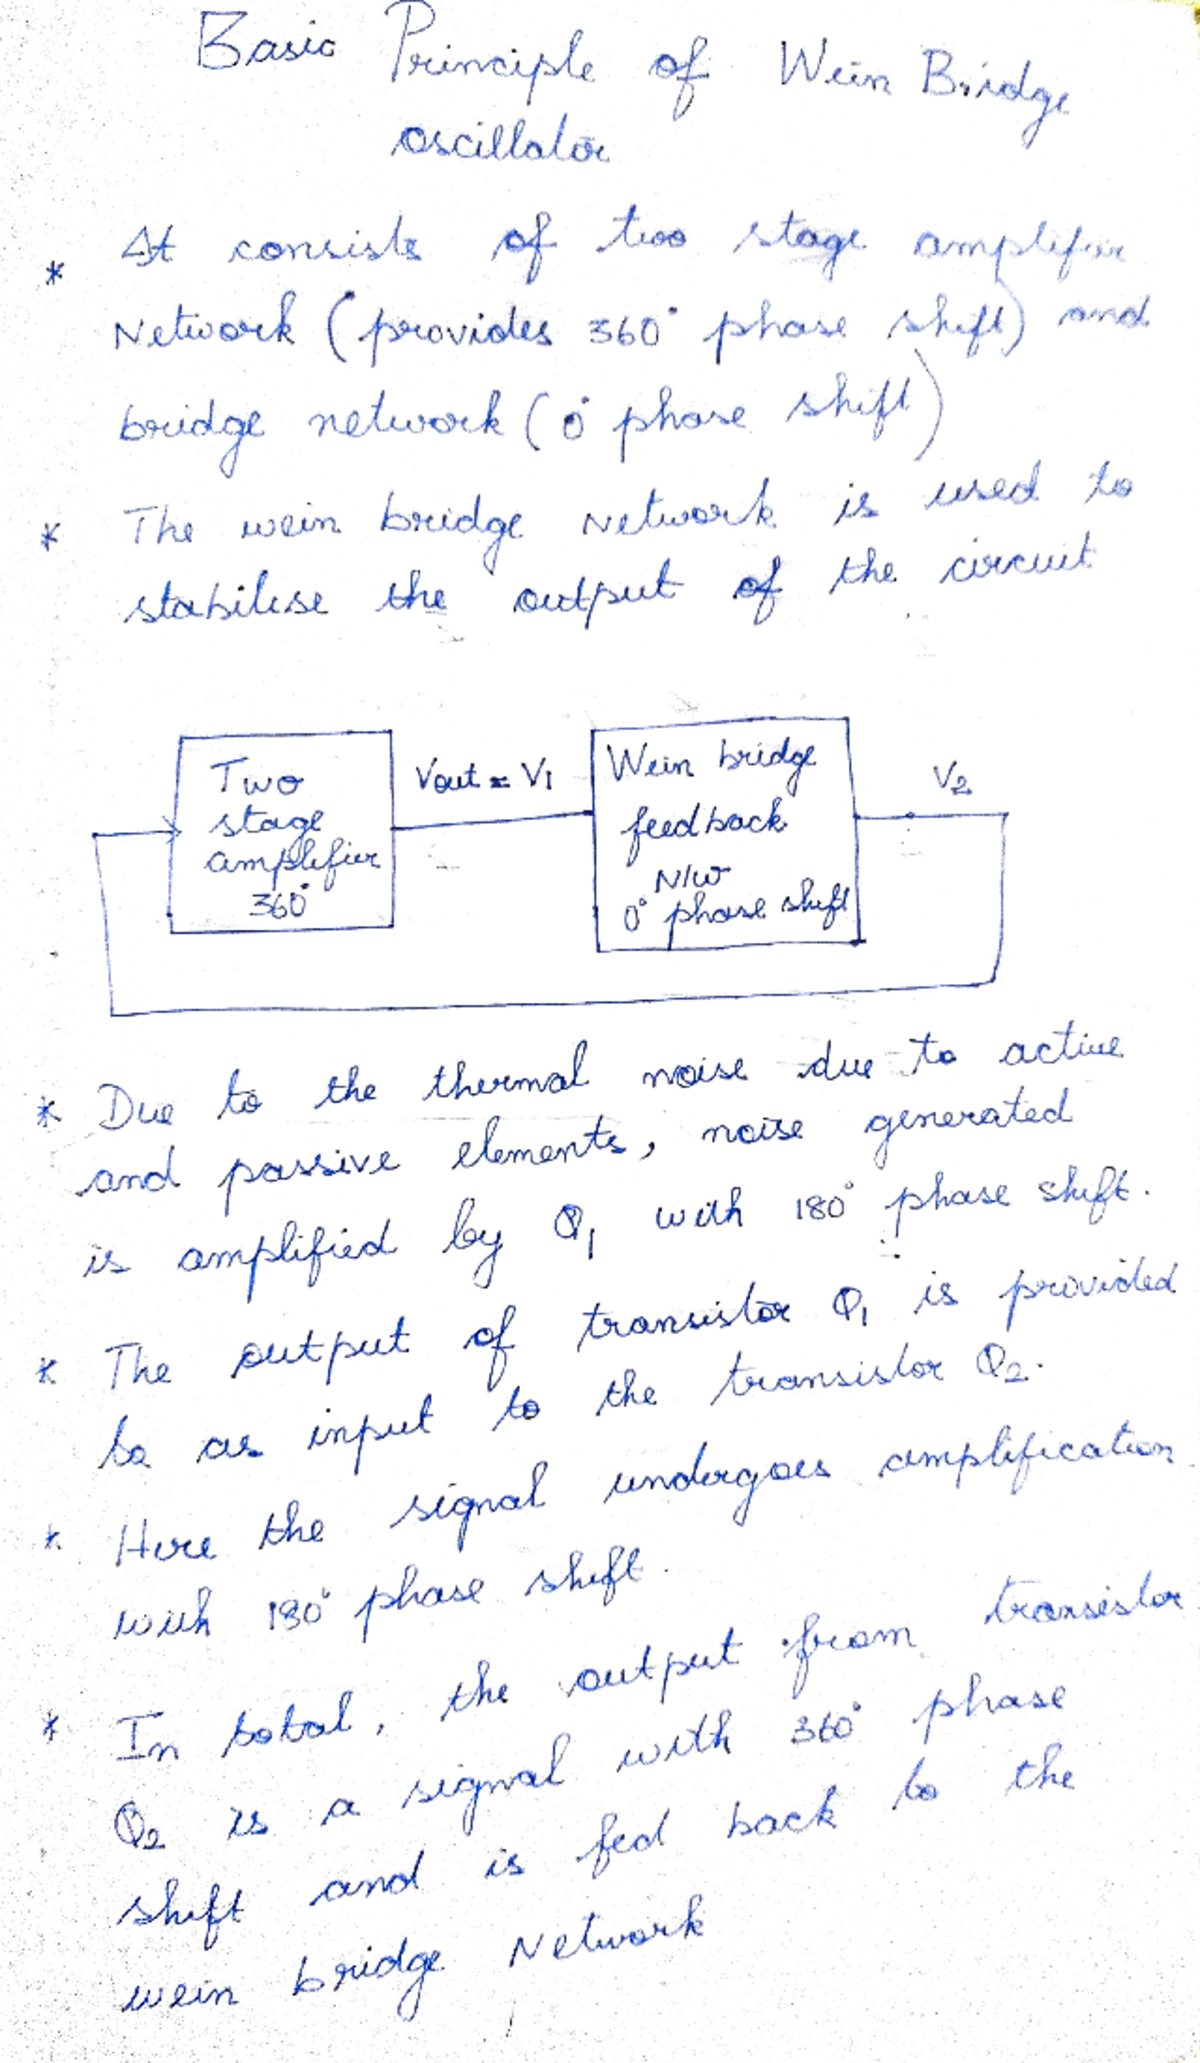 Basic Principle of Wein Bridge
oscillator
* It consists of two stage amplifier
Network (provides 360° phase shift) and
bridge network (0° phase shift)
* The wein bridge Network is used to
stabilise the output of the circuit
Two
stage
amplifier
360°
Vout = V1
Wein bridge
feedback
N/W
0° phase shift
V2
* Due to the thermal noise due to active
and passive elements, noise generated
is amplified by Q1 with 180° phase shift.
* The output of transistor Q1 is provided
to as input to the transistor Q2.
* Here the signal undergoes amplification
with 180° phase shift.
* In total, the output from transistor
Q2 is a signal with 360° phase
shift and is fed back to the
wein bridge Network